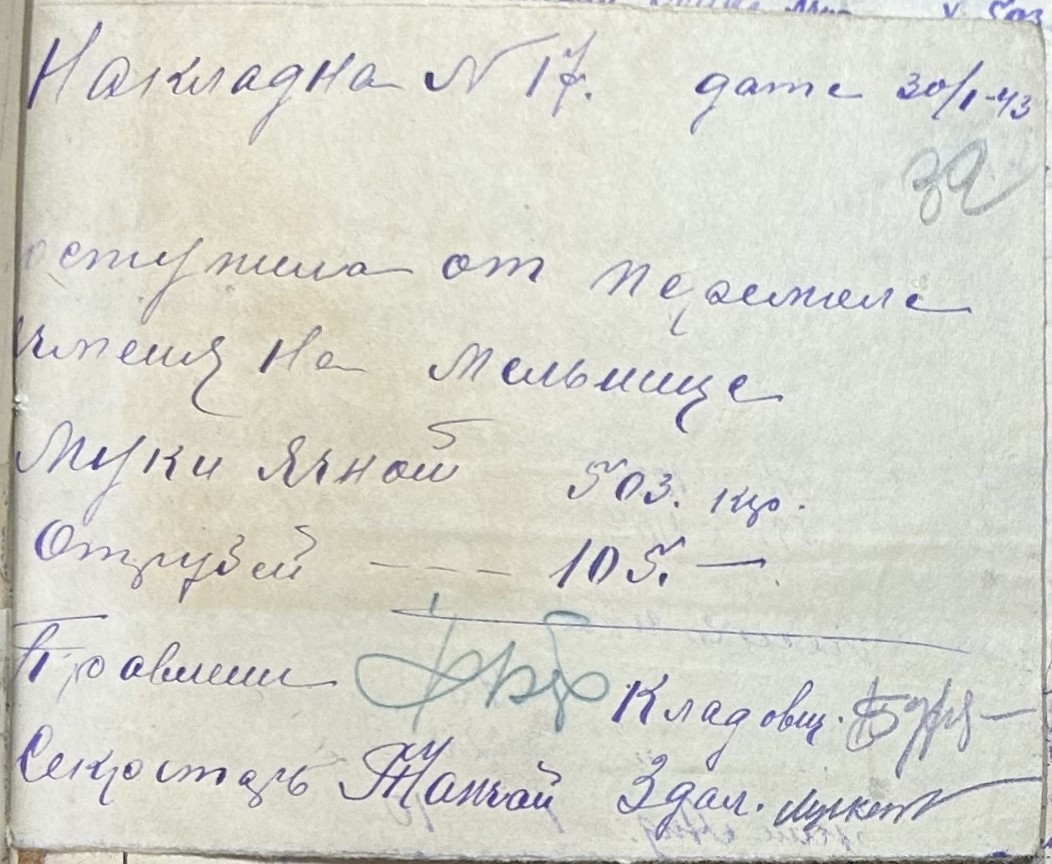 Накладна N 17. дате 30/I-43
32
оступила от перемеле
ячменя на мельнице
Муки ячной 503. кгр.
Отрубей - - - 105. —
Правлени Кладовщ.
Секротарь Здал.